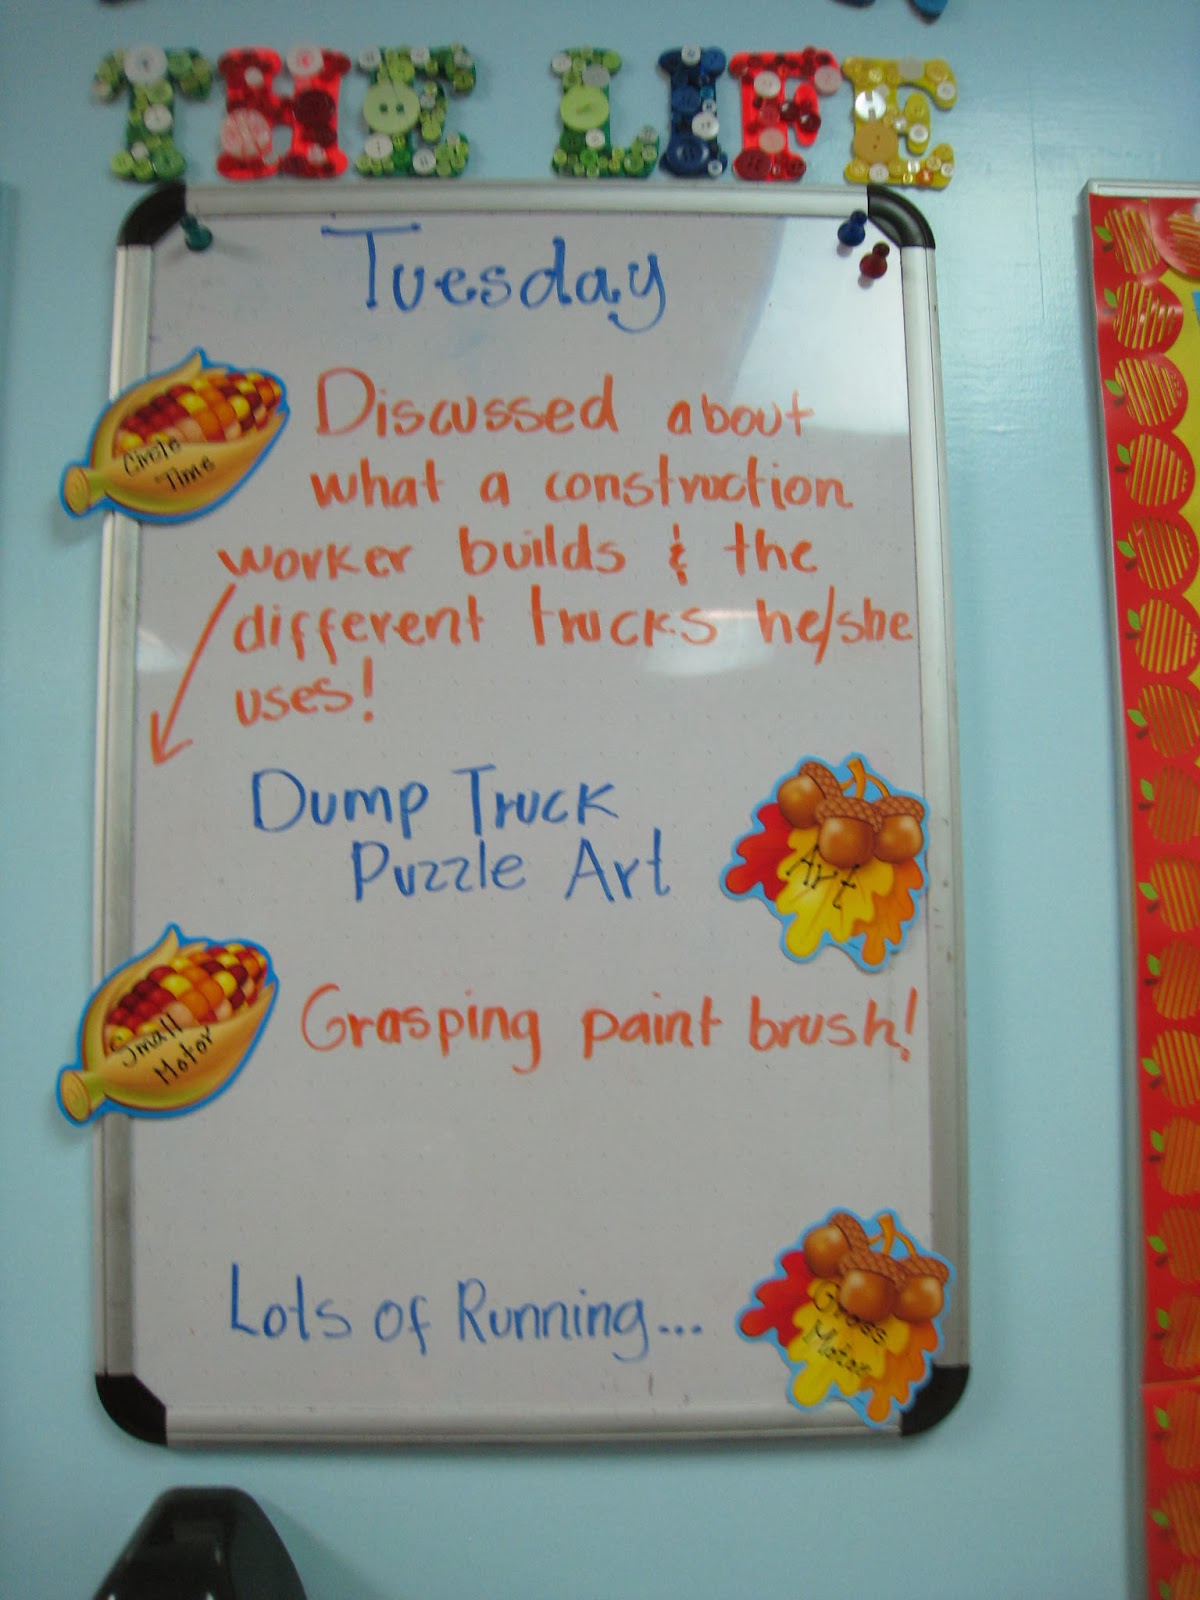 THE LIFE
Tuesday
Circle
Time
Discussed about
what a construction
worker builds & the
different trucks he/she
uses!
Dump Truck
Puzzle Art
Art
Small
Motor
Grasping paint brush!
Lots of Running...
Gross
Motor